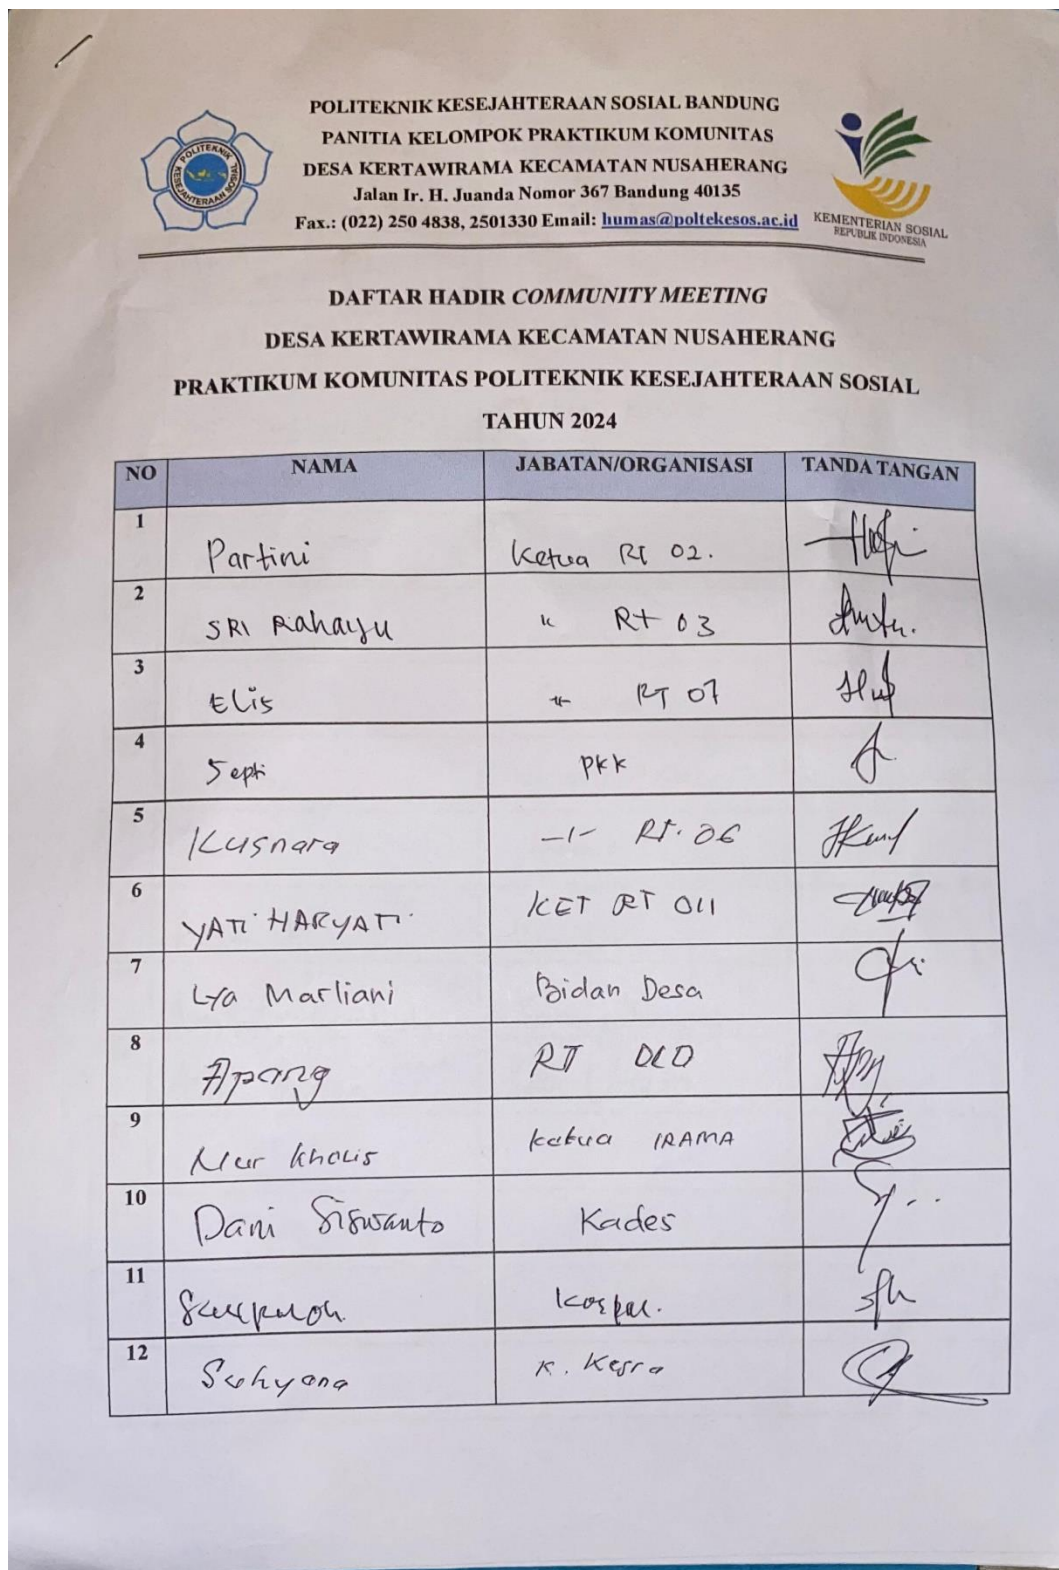 POLITEKNIK KESEJAHTERAAN SOSIAL BANDUNG
PANITIA KELOMPOK PRAKTIKUM KOMUNITAS
DESA KERTAWIRAMA KECAMATAN NUSAHERANG
Jalan Ir. H. Juanda Nomor 367 Bandung 40135
Fax.: (022) 250 4838, 2501330 Email: humas@poltekesos.ac.id
POLITEKNIK KESEJAHTERAAN SOSIAL
KEMENTERIAN SOSIAL
REPUBLIK INDONESIA
DAFTAR HADIR COMMUNITY MEETING
DESA KERTAWIRAMA KECAMATAN NUSAHERANG
PRAKTIKUM KOMUNITAS POLITEKNIK KESEJAHTERAAN SOSIAL
TAHUN 2024
NO NAMA JABATAN/ORGANISASI TANDA TANGAN
1 Partini Ketua RT 02.
2 SRI Rahayu " RT 03
3 Elis " RT 07
4 Septi PKK
5 Kusnara -1- RT. 06
6 YATI HARYATI KET RT 011
7 Lya Marliani Bidan Desa
8 Apang RT 010
9 Nur kholis Ketua IRAMA
10 Dani Siswanto Kades
11
12 Suhyana K. Kesra